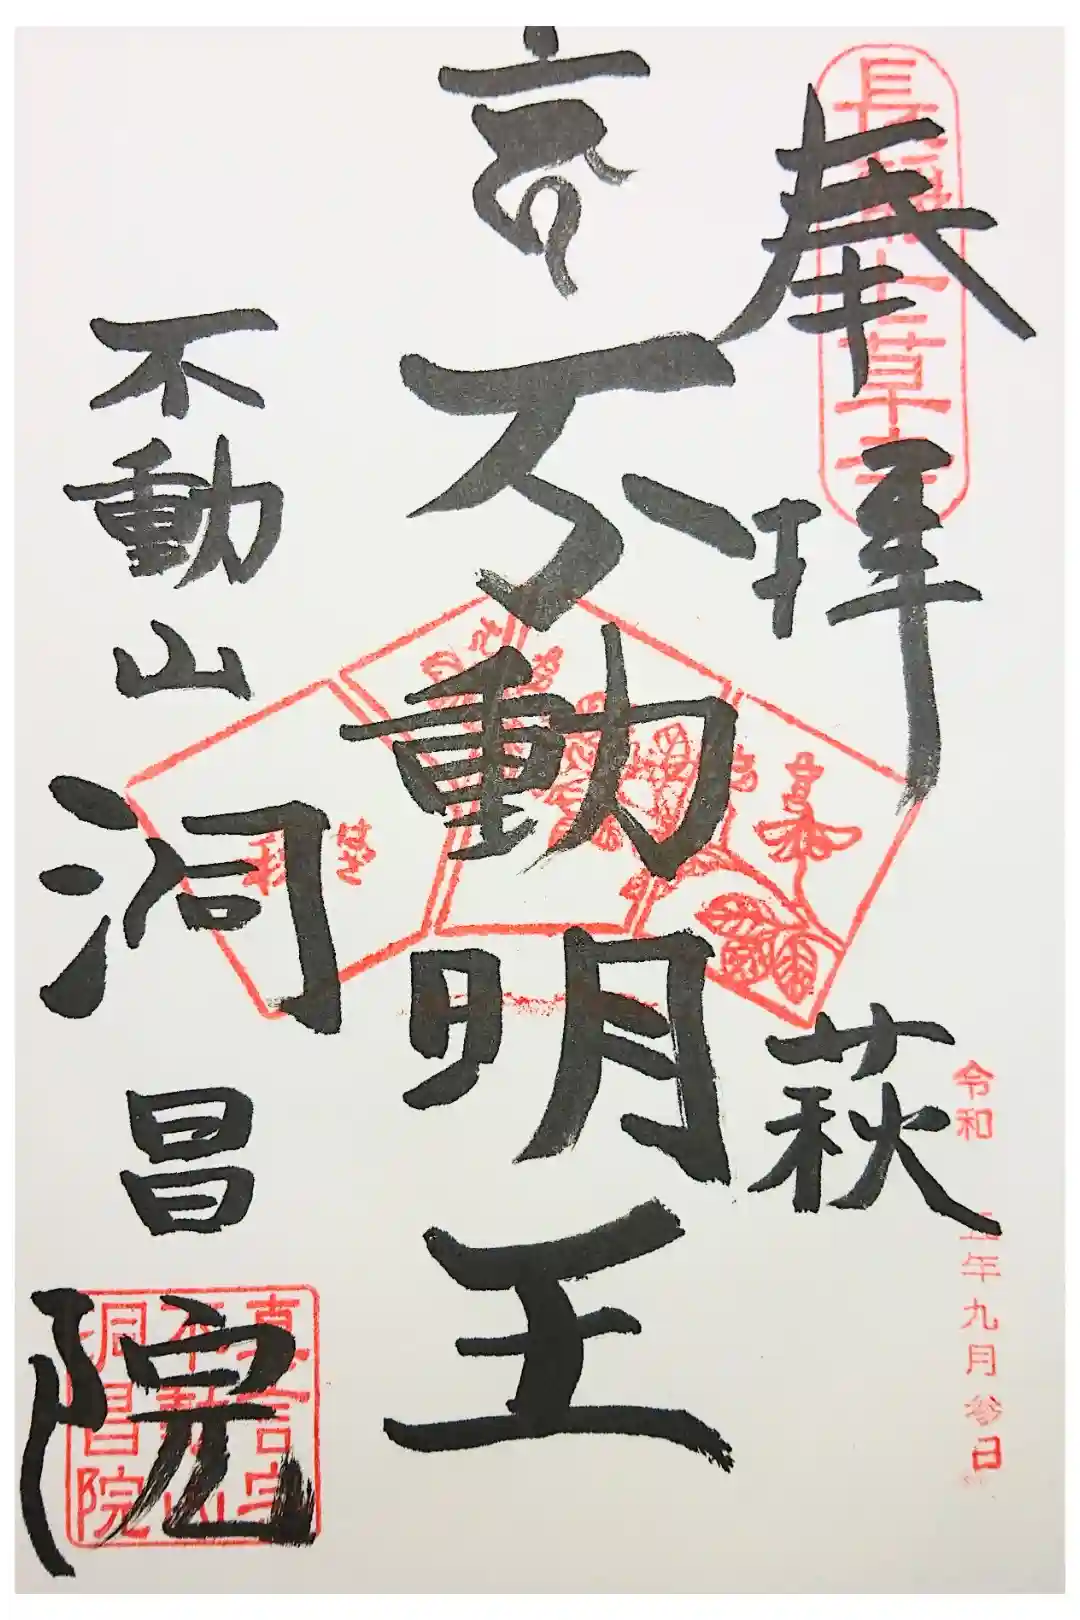 奉拝
萩
長瀞七草寺
令和
五年九月参日
不動明王
不動山
洞昌院
真言宗
不動山
洞昌院